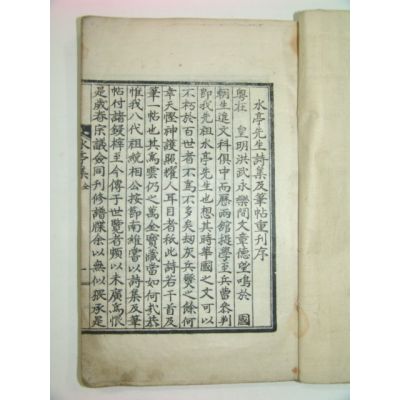 水亭先生詩集及筆帖重刊序
粤在　皇明洪武永樂間文章德望鳴於　國
朝生進文科俱中而歷兩館提學至兵曹參判
即我先祖水亭先生也想其時華國之文可以
不朽於百世者不多矣刼灰兵燹之餘何
幸天慳神護照耀人耳目者秖此詩若干首及
筆一帖也其爲雲仍之萬金寶藏當如何哉恭
惟我八代祖縣南雄嘗以詩集及筆
帖付諸鋟梓至今傳于世覽者頗以未廣爲恨
是歲春宗議僉同刊修譜牒余以無似猥承是
水亭集全